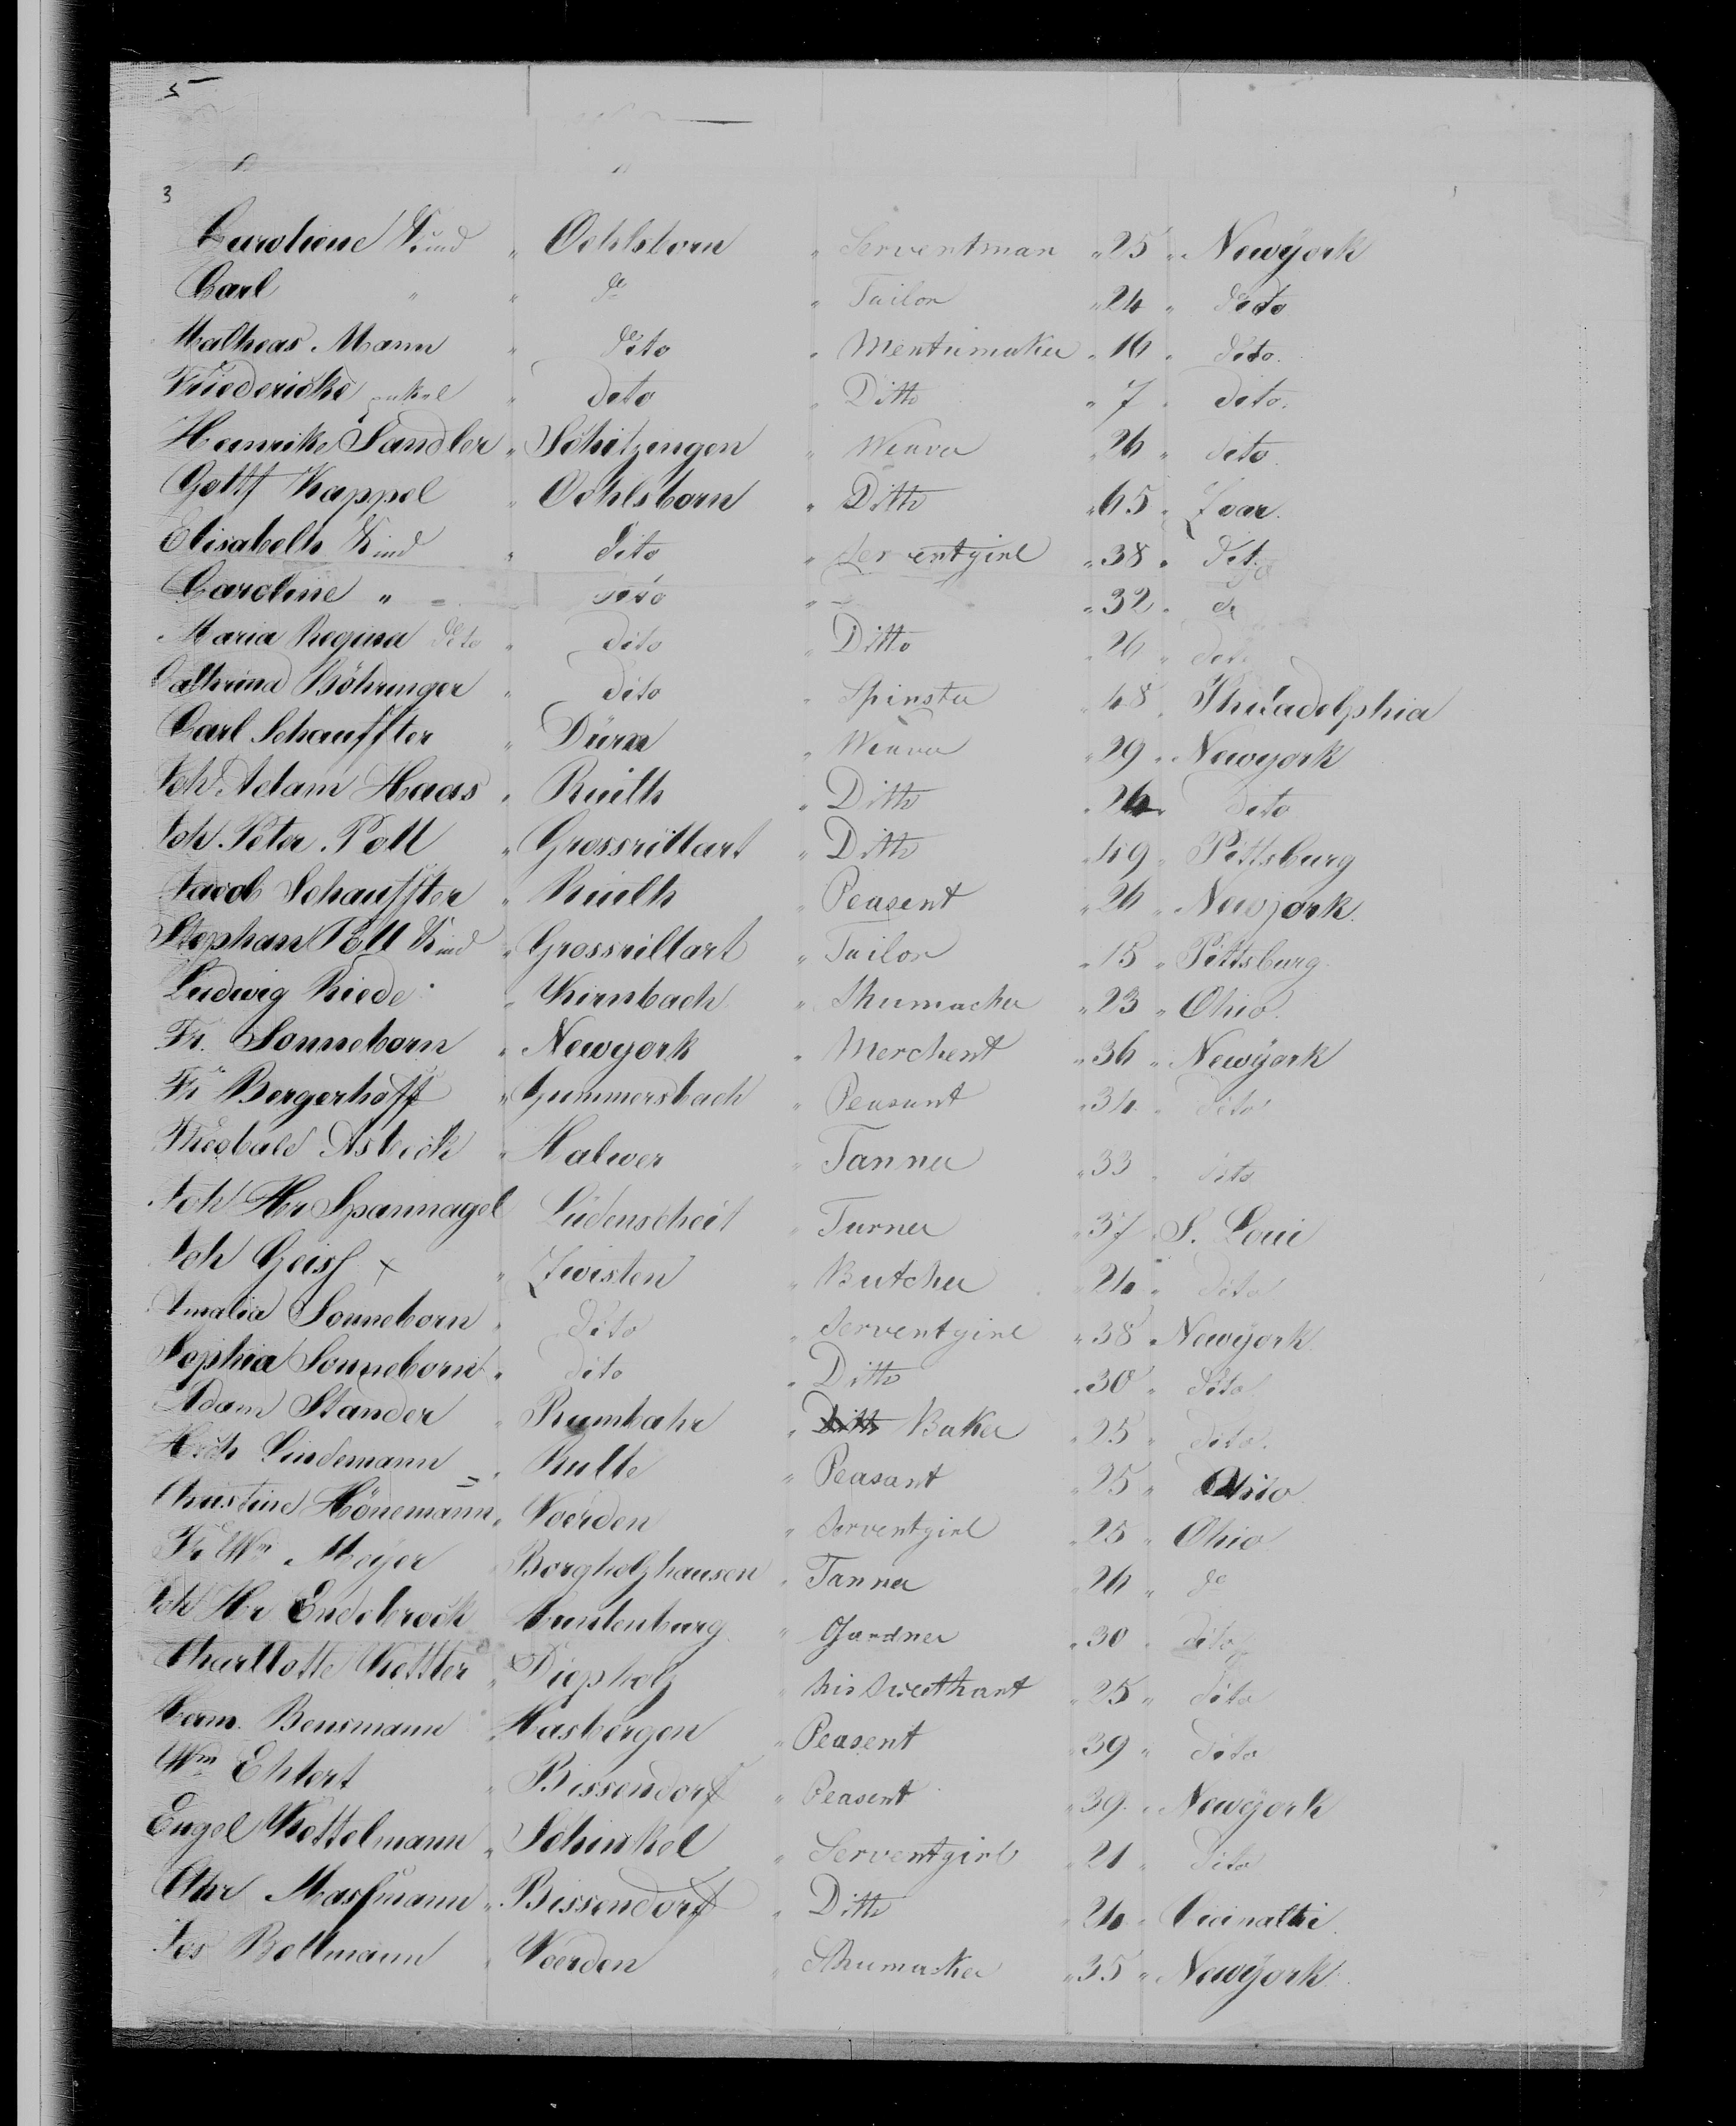 5
3
Caroliene Kind " Oehlsborn " Serventman " 25 " Newÿork
Carl " " do " Tailor " 24 " dito
Matheas Mann " dito " Mentumaker " 16 " dito.
Friedericke " dito " Ditto " 7 " dito.
Henrike Sandler " Schitzingen " Weaver " 26 " dito.
Gottf Kappel " Oehlsborn " Ditto " 65 " Zoar.
Elisabeth Kind " dito " Serventgirl " 38 " dit.
Caroline " " dito " " 32 " do
Maria Regina dito " dito " Ditto " 26 " dito
Cathrina Böhringer " dito " Spinster " 48 " Philadelphia
Carl Schauffler " Dürn " Weaver " 29 " Newyork
Joh Adam Haas " Ruith " Ditto " 24 " dito
Joh. Peter Poll " Grossrillart " Ditto " 49 " Pittsburg
Jacob Schauffler " Ruith " Peasent " 26 " Newjork.
Stephan Poll Kind " Grossrillart " Tailor " 15 " Pittsburg.
Ludwig Riede " Kirnbach " Shumacker " 23 " Ohio.
Fr. Sonneborn " Newyork " Merchent " 36 " Newÿork
Fr Bergerhoff " Gummersbach " Peasant " 34 " dito
Theobald Asbeck " Halwer " Tanner " 33 " dito
Joh Hr Spannagel Lüdenscheit " Turner " 37 " S. Loui
Joh Geiss x " Zwisten " Butcher " 24 " dito
Amalia Sonneborn " dito " Serventgirl " 38 " Newÿork.
Sophia Sonneborn " dito " Ditto " 30 " dito.
Adam Stander " Rumbahr " Ditto Baker " 25 " dito.
Hrch Lindemann " Kulte " Peasant " 25 " Ohio.
Christine Hönemann " Voerden " Serventgirl " 25 " Ohio
Fr Wm Meÿer " Borgholzhausen " Tanner " 26 " do
Joh Hr Endebrock " Gardner " 30 " dito
Charllotte Kettler " Diepholz " his Sweethart " 25 " dito
Herm. Bensmann " Hasbergen " Peasent " 39 " dito
Wm Ehlert " Bissendorf " Peasent " 39 " Newÿork
Engel Kottelmann " Schinkel " Serventgirl " 21 " dito
Chr Massmann " Bissendorf " Ditto " 24 " Cicinathi.
Jos Bollmann " Voerden " Shumacker " 35 " Newÿork.